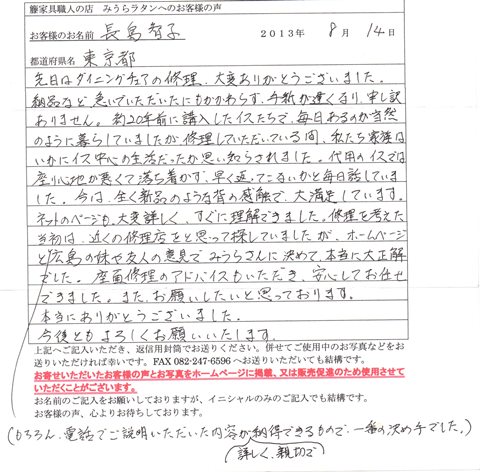 籐家具職人の店　みうらラタンへのお客様の声
お客様のお名前　長島智子　2013年　8月　14日
都道府県名　東京都
先日はダイニングチェアの修理、大変ありがとうございました。
納品など急いでいただいたにもかかわらず、手紙が遅くなり、申し訳
ありません。約20年前に購入したイスたちで、毎日あるのが当然
のように暮らしていましたが修理していただいている間、私たち家族は
いかにイス中心の生活だったか思い知らされました。代用のイスでは
座り心地が悪くて落ち着かず、早く返ってこないかと毎日話していま
した。今は、全く新品のような背の感触で、大満足しています。
ネットのページも、大変詳しく、すぐに理解できました。修理を考えた
当初は、近くの修理店をと思って探していましたが、ホームページ
と広島の妹や友人の意見でみうらさんに決めて、本当に大正解
でした。座面修理のアドバイスもいただき、安心してお任せ
できました。また、お願いしたいと思っております。
本当にありがとうございました。
今後ともよろしくお願いいたします。
上記へご記入いただき、返信用封筒でお送りください。併せてご使用中のお写真などをお
送りいただければ幸いです。FAX 082-247-6596 へお送りいただいても結構です。
お寄せいただいたお客様の声とお写真をホームページに掲載、又は販売促進のため使用させて
いただくことがございます。
お名前のご記入をお願いしておりますが、イニシャルのみのご記入でも結構です。
お客様の声、心よりお待ちしております。
(もちろん、電話でご説明いただいた内容が納得できるもので、一番の決め手でした。)
詳しく、親切で